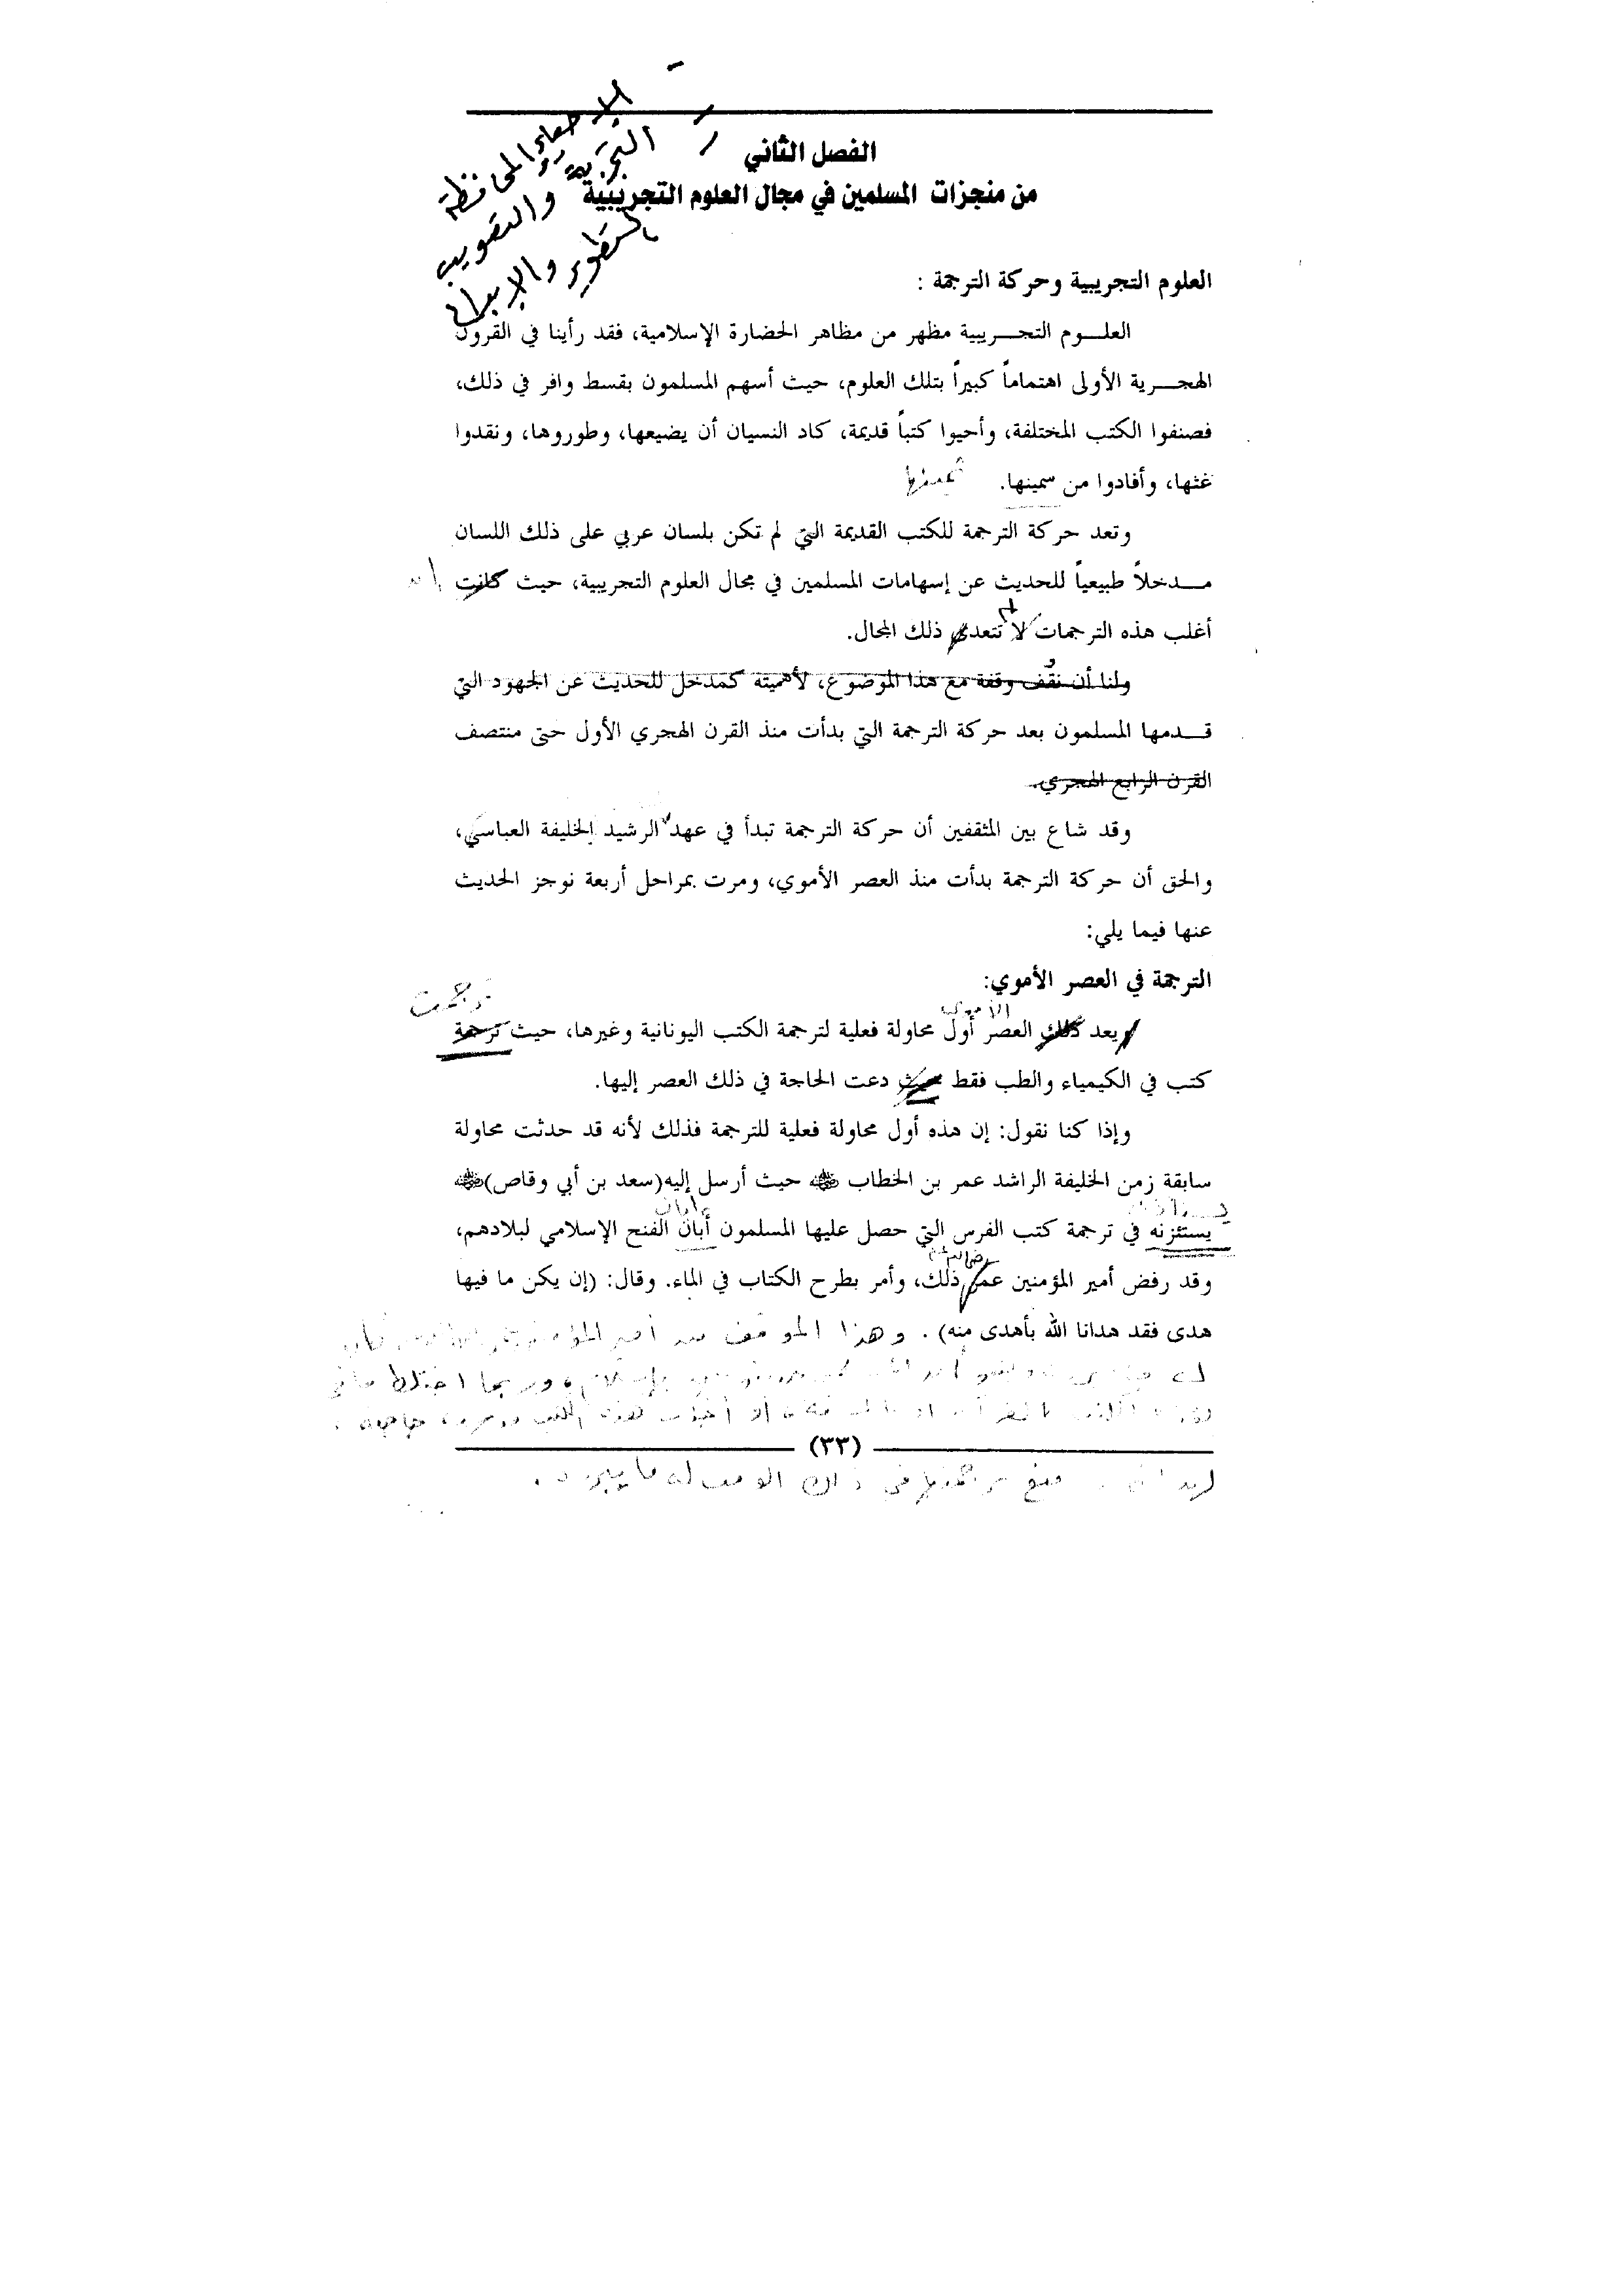 الإحياء والمحافظة
التجربة والتصويب
التطوير والإبداع
الفصل الثاني
من منجزات المسلمين في مجال العلوم التجريبية
العلوم التجريبية وحركة الترجمة :
العلـــوم التجـــريبية مظهر من مظاهر الحضارة الإسلامية، فقد رأينا في القرون
الهجـــرية الأولى اهتماماً كبيراً بتلك العلوم، حيث أسهم المسلمون بقسط وافر في ذلك،
فصنفوا الكتب المختلفة، وأحيوا كتباً قديمة، كاد النسيان أن يضيعها، وطوروها، ونقدوا
غثها، وأفادوا من سمينها.
وتعد حركة الترجمة للكتب القديمة التي لم تكن بلسان عربي على ذلك اللسان
مـــدخلاً طبيعياً للحديث عن إسهامات المسلمين في مجال العلوم التجريبية، حيث كانت
لم
أغلب هذه الترجمات لا تتعدى ذلك المجال.
ولنا أن نقف وقفة مع هذا الموضوع، لأهميته كمدخل للحديث عن الجهود التي
قـــدمها المسلمون بعد حركة الترجمة التي بدأت منذ القرن الهجري الأول حتى منتصف
القرن الرابع الهجري.
وقد شاع بين المثقفين أن حركة الترجمة تبدأ في عهد الرشيد الخليفة العباسي،
والحق أن حركة الترجمة بدأت منذ العصر الأموي، ومرت بمراحل أربعة نوجز الحديث
عنها فيما يلي:
الترجمة في العصر الأموي:
ترجمت
الأموي
ويعد ذلك العصر أول محاولة فعلية لترجمة الكتب اليونانية وغيرها، حيث ترجمة
كتب في الكيمياء والطب فقط حيث دعت الحاجة في ذلك العصر إليها.
وإذا كنا نقول: إن هذه أول محاولة فعلية للترجمة فذلك لأنه قد حدثت محاولة
سابقة زمن الخليفة الراشد عمر بن الخطاب رضي الله عنه حيث أرسل إليه(سعد بن أبي وقاص)رضي الله عنه
يستأذنه
يستئزنه في ترجمة كتب الفرس التي حصل عليها المسلمون أبان الفتح الإسلامي لبلادهم،
رضي الله عنه
وقد رفض أمير المؤمنين عمر ذلك، وأمر بطرح الكتاب في الماء. وقال: (إن يكن ما فيها
هدى فقد هدانا الله بأهدى منه). وهذا الموقف من أمير المؤمنين
وربما اختلط
(٣٣)
في ذلك الوقت له ما يبرره.